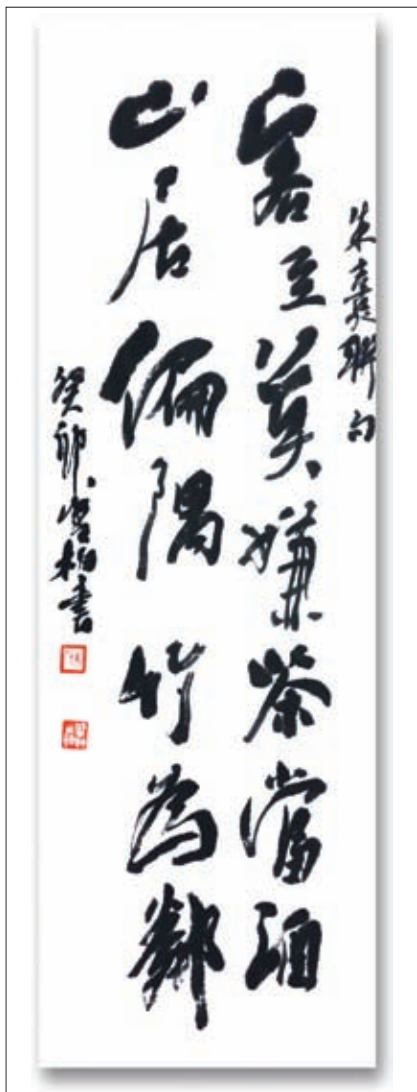 朱熹聯句
客至莫嫌茶當酒
山居偏隅竹為鄰
癸卯 柏書